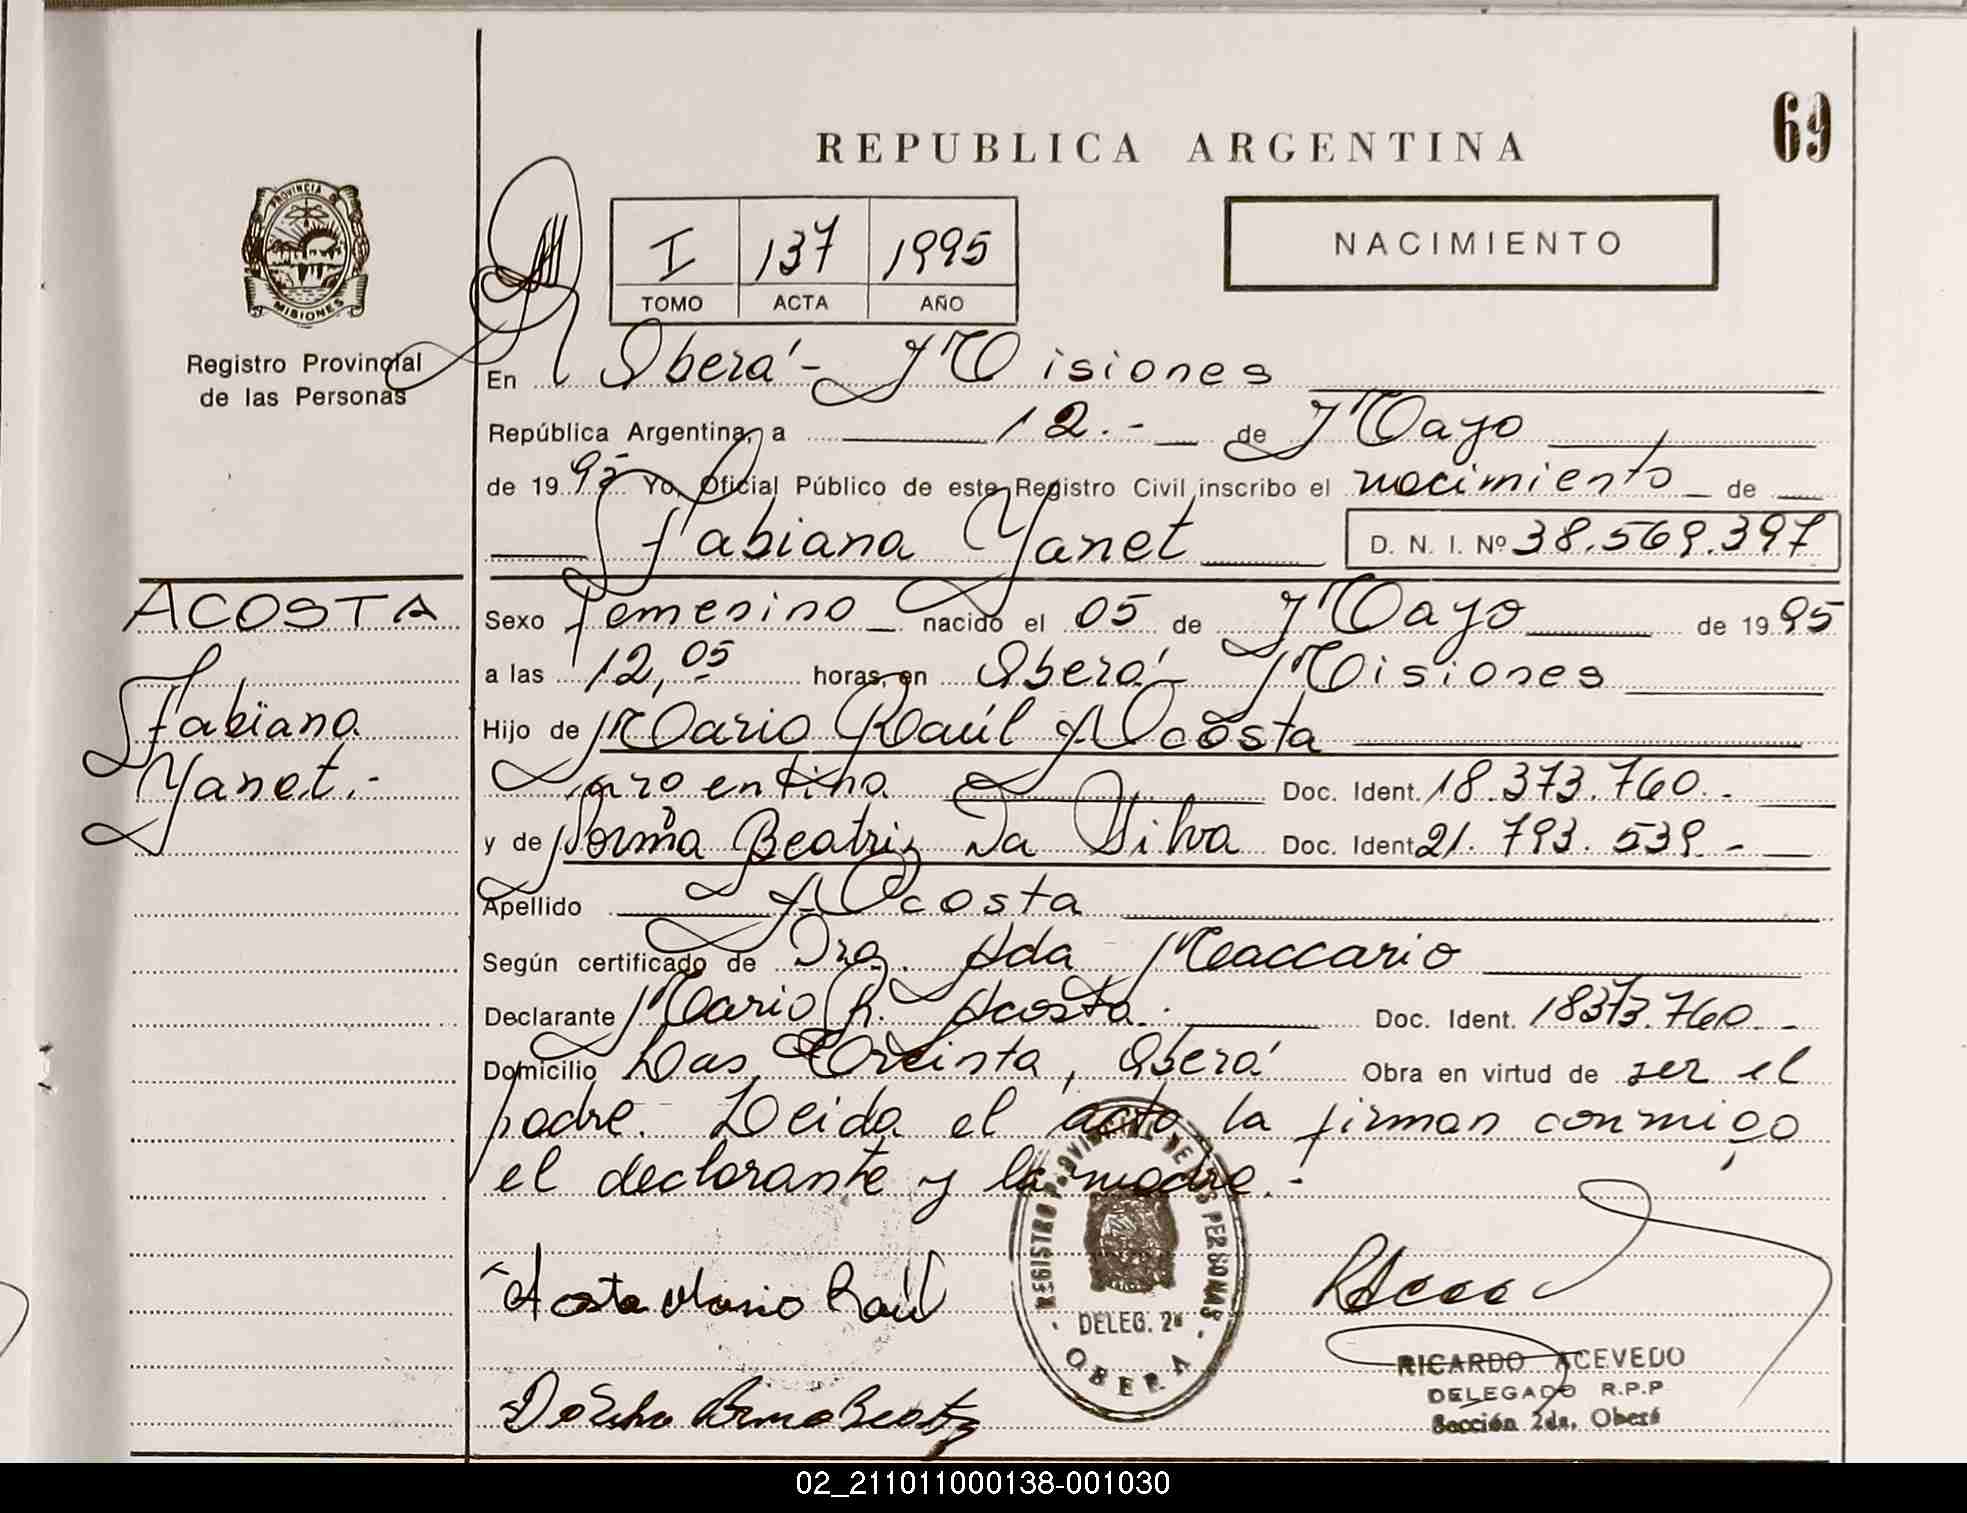 69
REPUBLICA ARGENTINA
PROVINCIA DE
MISIONES
Registro Provincial
de las Personas
I 137 1995
TOMO ACTA AÑO
NACIMIENTO
En Oberá - Misiones
República Argentina, a 12.- de Mayo
de 1995 Yo, Oficial Público de este Registro Civil inscribo el nacimiento de
Fabiana Yanet D. N. I. Nº 38.569.397
ACOSTA
Fabiana
Yanet.-
Sexo femenino nacido el 05 de Mayo de 1995
a las 12,05 horas, en Oberá - Misiones
Hijo de Mario Raúl Acosta
argentino Doc. Ident. 18.373.760.-
y de Norma Beatriz Da Silva Doc. Ident. 21.793.539.-
Apellido Acosta
Según certificado de Dra. Ada Maccario
Declarante Mario R. Acosta. Doc. Ident. 18373.760.-
Domicilio Las Treinta, Oberá Obra en virtud de ser el
padre. Leida el acta la firman conmigo
el declarante y la madre.-
Acosta Mario Raúl
REGISTRO PROVINCIAL DE LAS PERSONAS
DELEG. 2ª
OBERA
RICARDO ACEVEDO
DELEGADO R.P.P
Sección 2da. Oberá
Da Silva Norma Beatriz
02_211011000138-001030